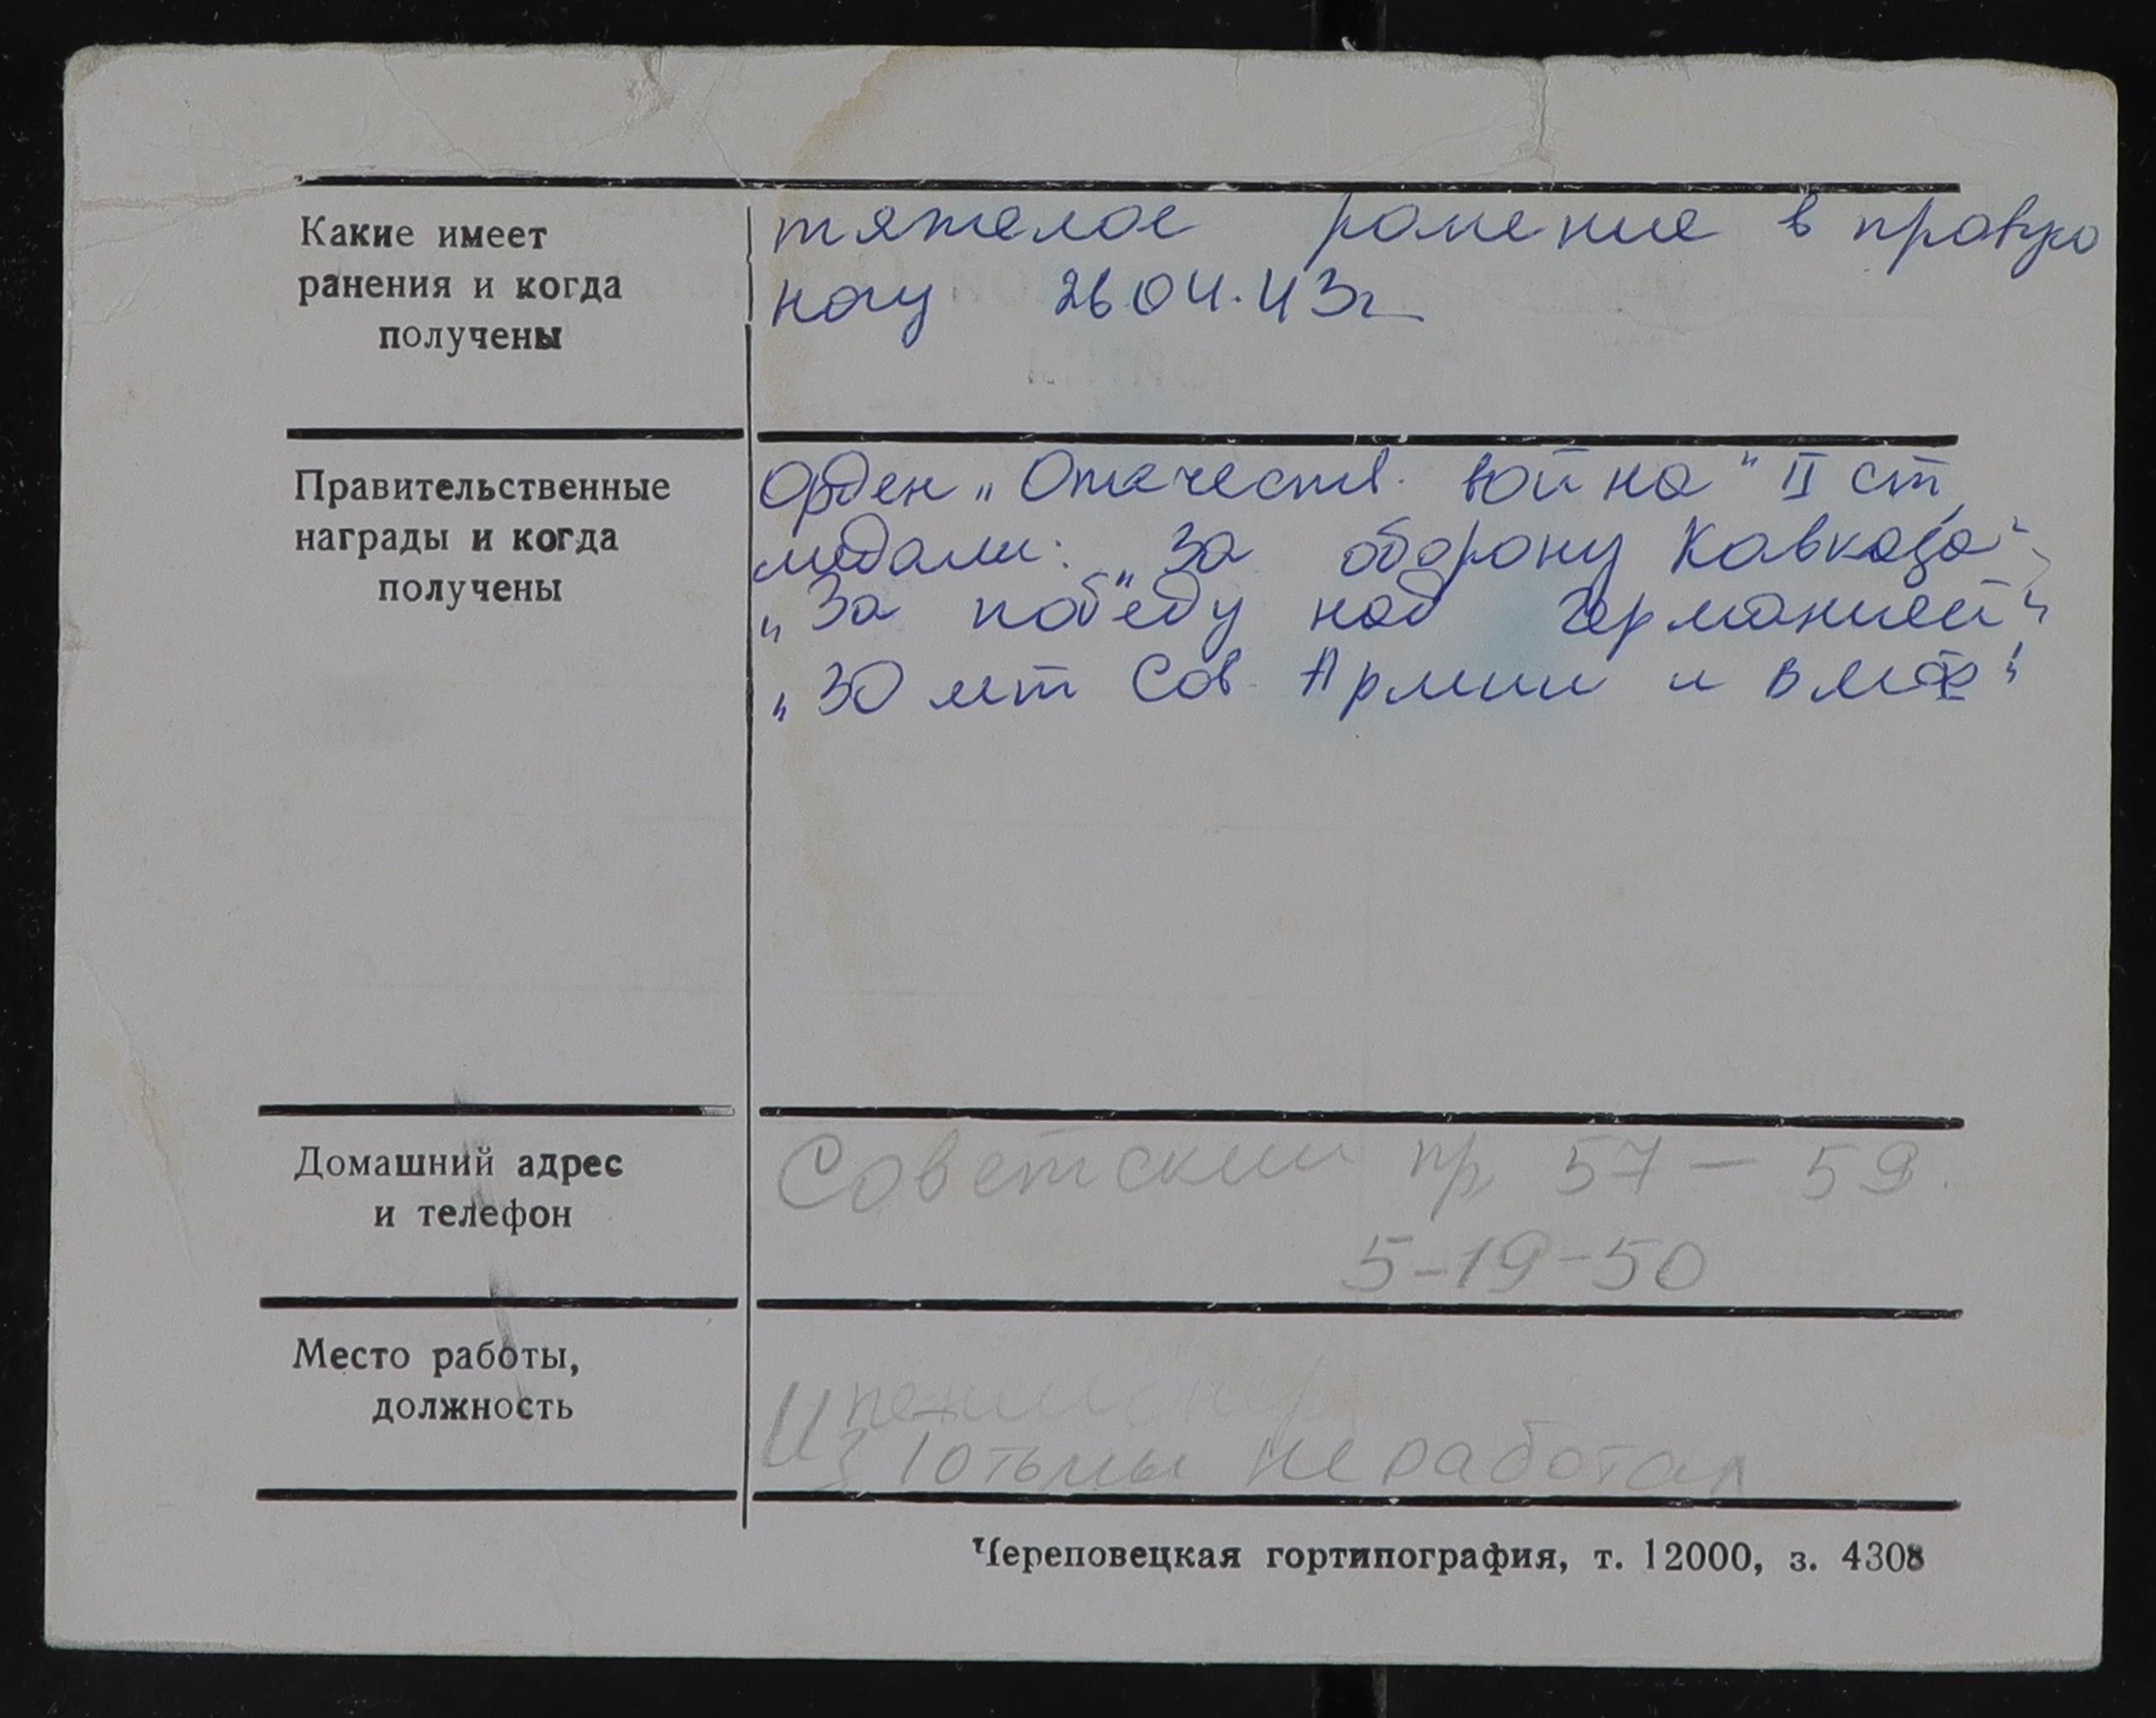 Какие имеет
ранения и когда
получены
тяжелое ранение в правую
ногу 26.04.43г
Правительственные
награды и когда
получены
Орден „Отечеств. война" II ст,
медали: „За оборону Кавказа",
„За победу над Германией"
„30 лет Сов. Армии и ВМФ"
Домашний адрес
и телефон
Советский пр. 57 – 59.
5-19-50
Место работы,
должность
пенсионер
Из не работал
Череповецкая гортипография, т. 12000, з. 4308